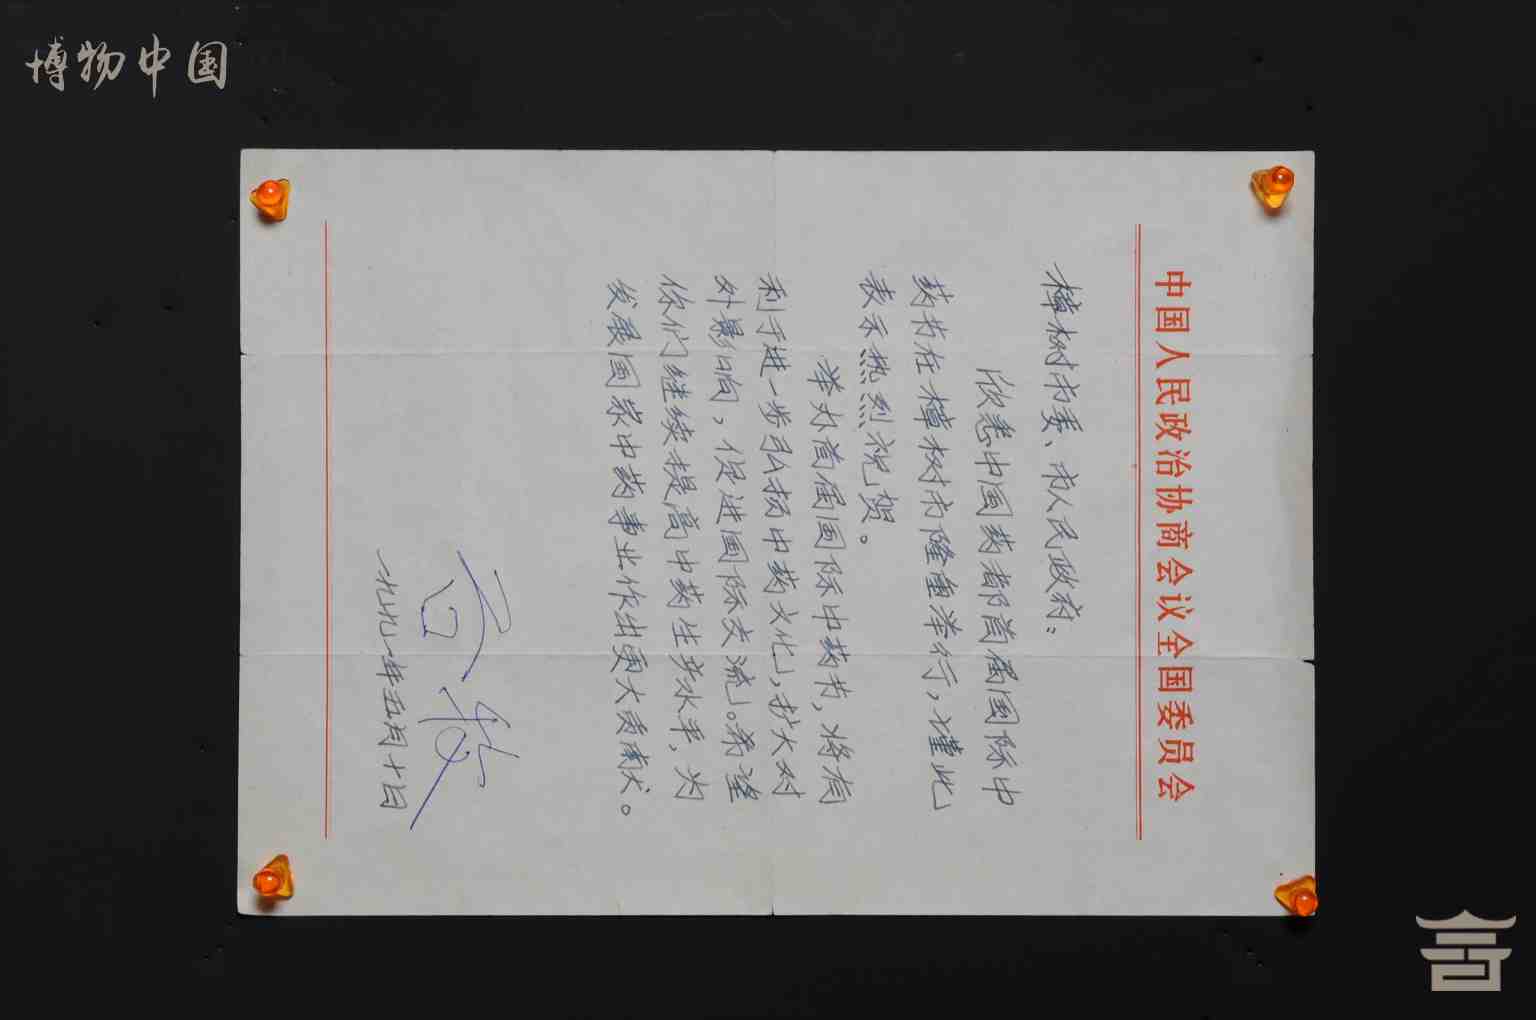 博物中国
中国人民政治协商会议全国委员会
樟树市委、市人民政府：
欣悉中国药都首届国际中
药节在樟树市隆重举行，谨此
表示热烈祝贺。
举办首届国际中药节，将有
利于进一步弘扬中药文化，扩大对
外影响，促进国际交流。希望
你们继续提高中药生产水平，为
发展国家中药事业作出更大贡献。
一九九一年五月十日